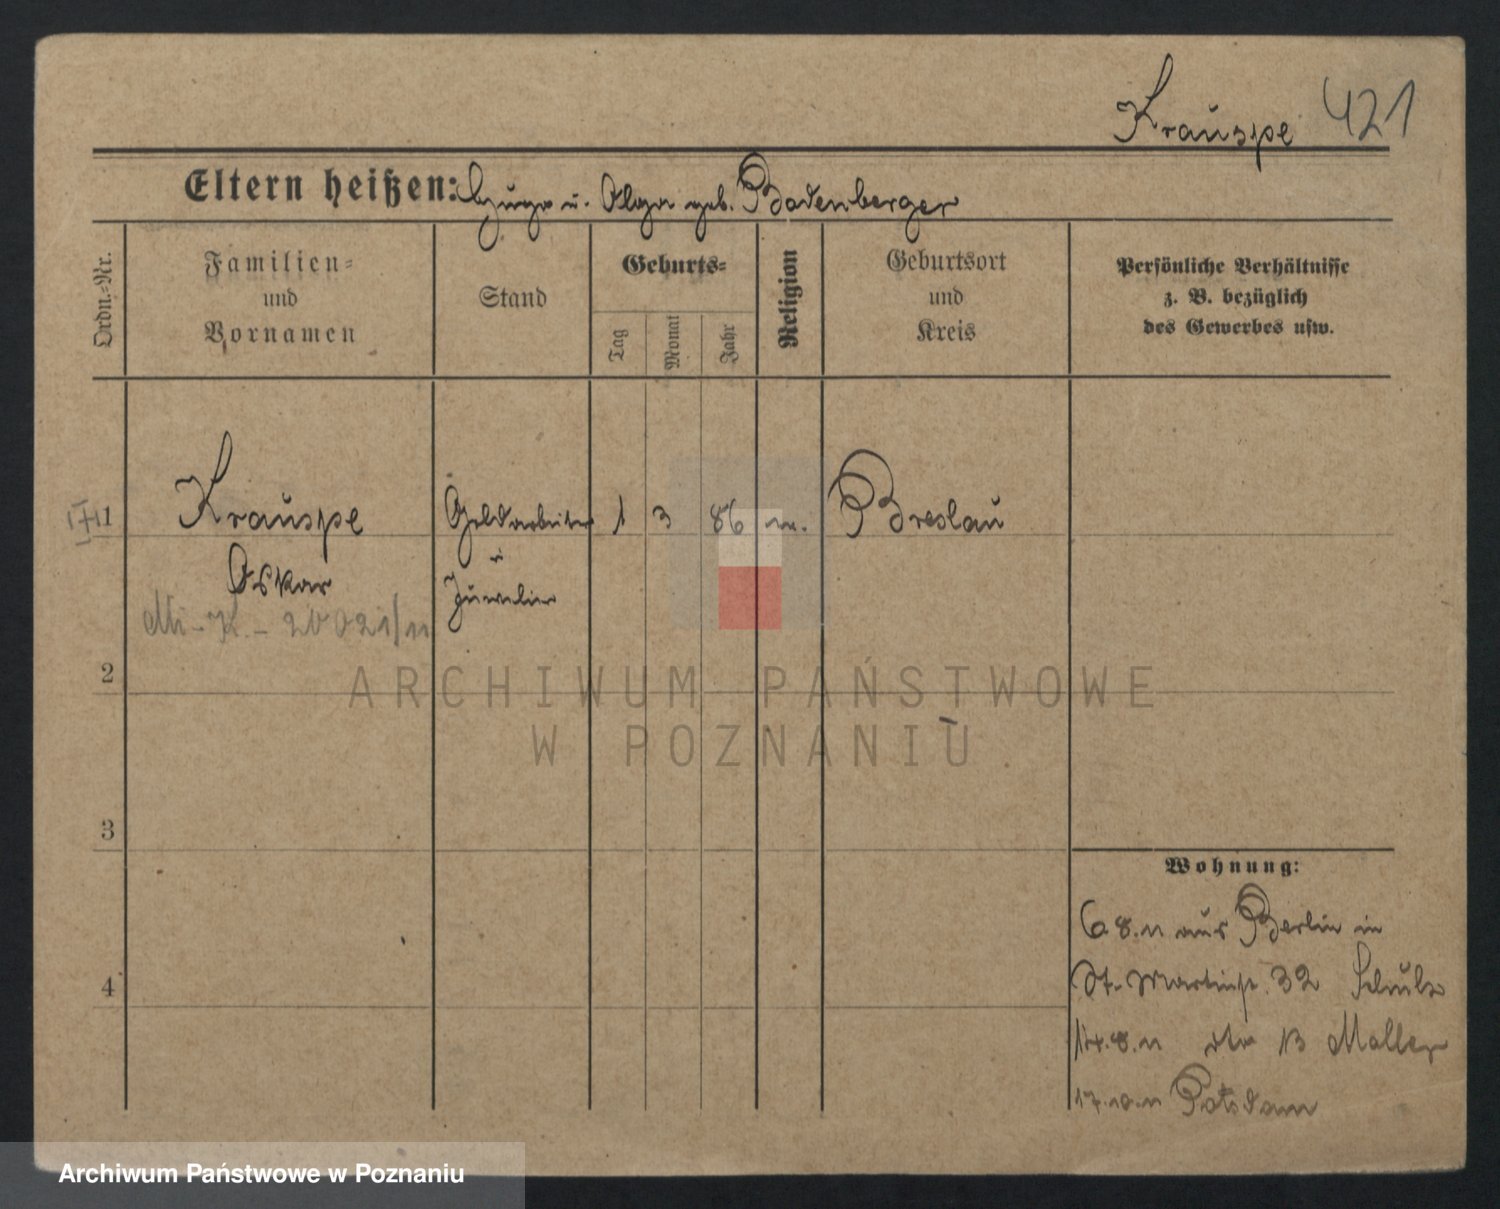 Krauspe 421
Eltern heißen: Hugo u. Olga geb. Bodenberger
Ordn.=Nr.
Familien=
und
Vornamen
Stand
Geburts=
Tag
Monat
Jahr
Religion
Geburtsort
und
Kreis
Persönliche Verhältnisse
z. B. bezüglich
des Gewerbes usw.
1 Krauspe Goldarbeiter 1 3 86 Breslau
Oskar u
Juwelier
Mi-K.- 20021/11
2
3
4
Wohnung:
6 8.11 aus Berlin in
St. Martinst. 32 Schulz
14.8.11 dto 13 Moller
17.10.11 Potsdam
ARCHIWUM PAŃSTWOWE
W POZNANIU
Archiwum Państwowe w Poznaniu